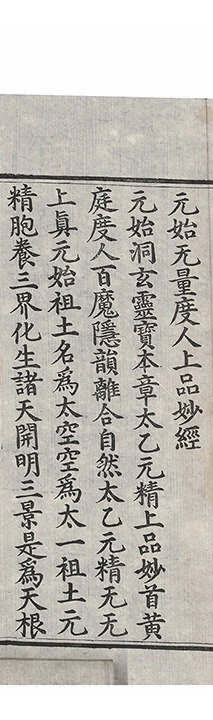 元始无量度人上品妙經
元始洞玄靈寶本章太乙元精上品妙首黄
庭度人百魔隱韻離合自然太乙元精无无
上眞元始祖土名爲太空空爲太一祖土元
精胞養三界化生諸天開明三景是爲天根